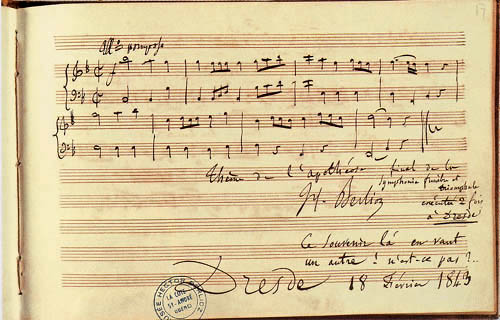 17
All° pomposo
f
Thème de l'apothéose, final de la
Symphonie funèbre et
triomphale
exécutée 2 fois
à Dresde
H. Berlioz
Ce souvenir là en vaut
un autre! n'est-ce pas?..
Dresde 18 Février 1843
MUSÉE HECTOR BERLIOZ
LA CÔTE
ST-ANDRÉ